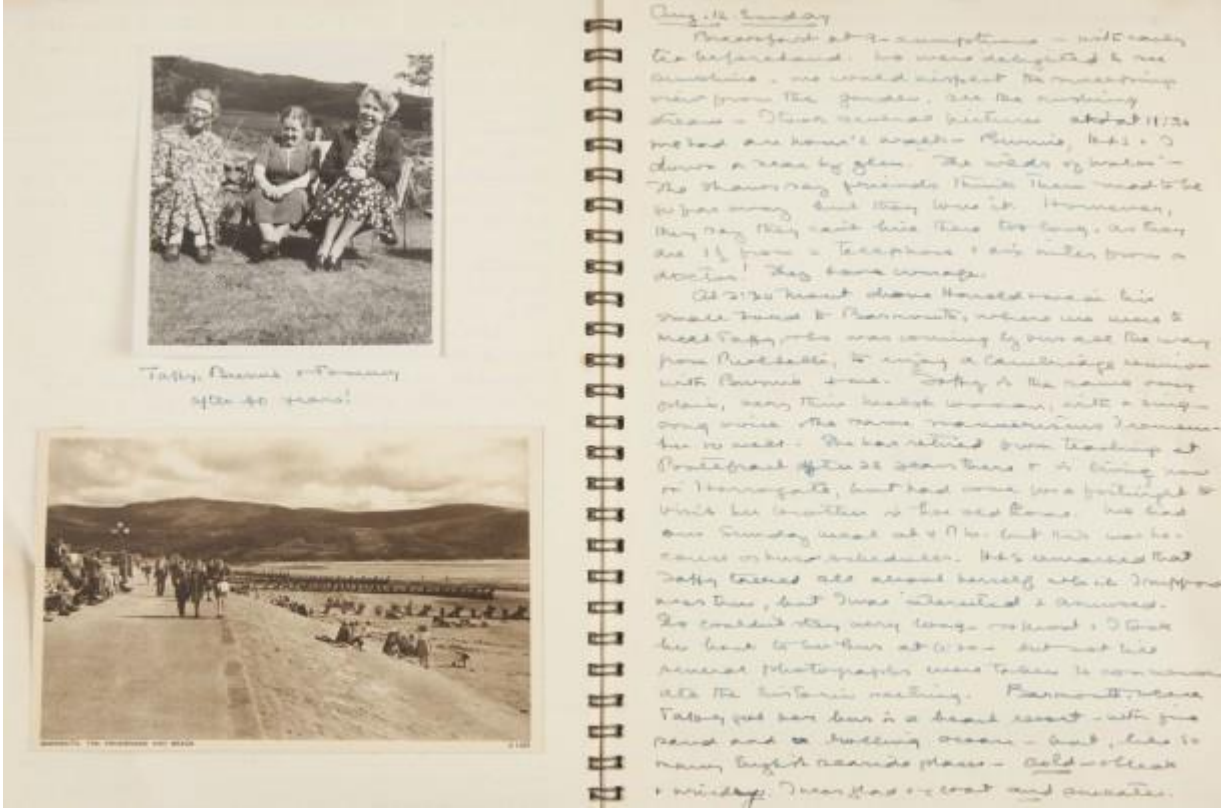 Taffy, Bunnie & Tommy
after 40 years!
BARMOUTH, THE PROMENADE AND BEACH
Aug. 12. Sunday
Breakfast at 9 - sumptuous - with early
tea beforehand. We were delighted to see
sunshine - we would inspect the
view from the garden, see the rushing
stream - I took several pictures and at 11:30
we had an hour's walk - Bunnie, H.S. & I
down a near by glen. The wilds of Wales -
The Shaws say friends think them mad to be
so far away but they love it. However,
they say they can't live there too long, as they
are 1½ from a telephone & six miles from a
doctor! They have courage.
At 2:30 drove Harold & me in his
small to Barmouth, where we were to
meet Taffy, who was coming by bus all the way
from Pwllheli, to enjoy a Cambridge reunion
with Bunnie & me. Taffy is the same very
plain, very thin Welsh woman, with a sing-
song voice, the same mannerisms I remem-
ber so well. She has retired from teaching at
Pontefract after 28 years there & is living now
in Harrogate, but had come for a fortnight to
visit her brother in the old home. We had
our Sunday meal at 4 but this was be-
cause of bus schedules. H.S. remarked that
Taffy talked all about herself which I suppose
was true, but I was interested & amused.
She couldn't stay very long - so & I took
her back to her bus at 6:30 - but not
several photographs were taken to commemor-
ate the historic meeting. Barmouth, where
Taffy got her bus is a beach resort - with fine
sand and a rolling ocean - but, like so
many English seaside places - cold - bleak
& windy. I was glad of my coat and sweater.